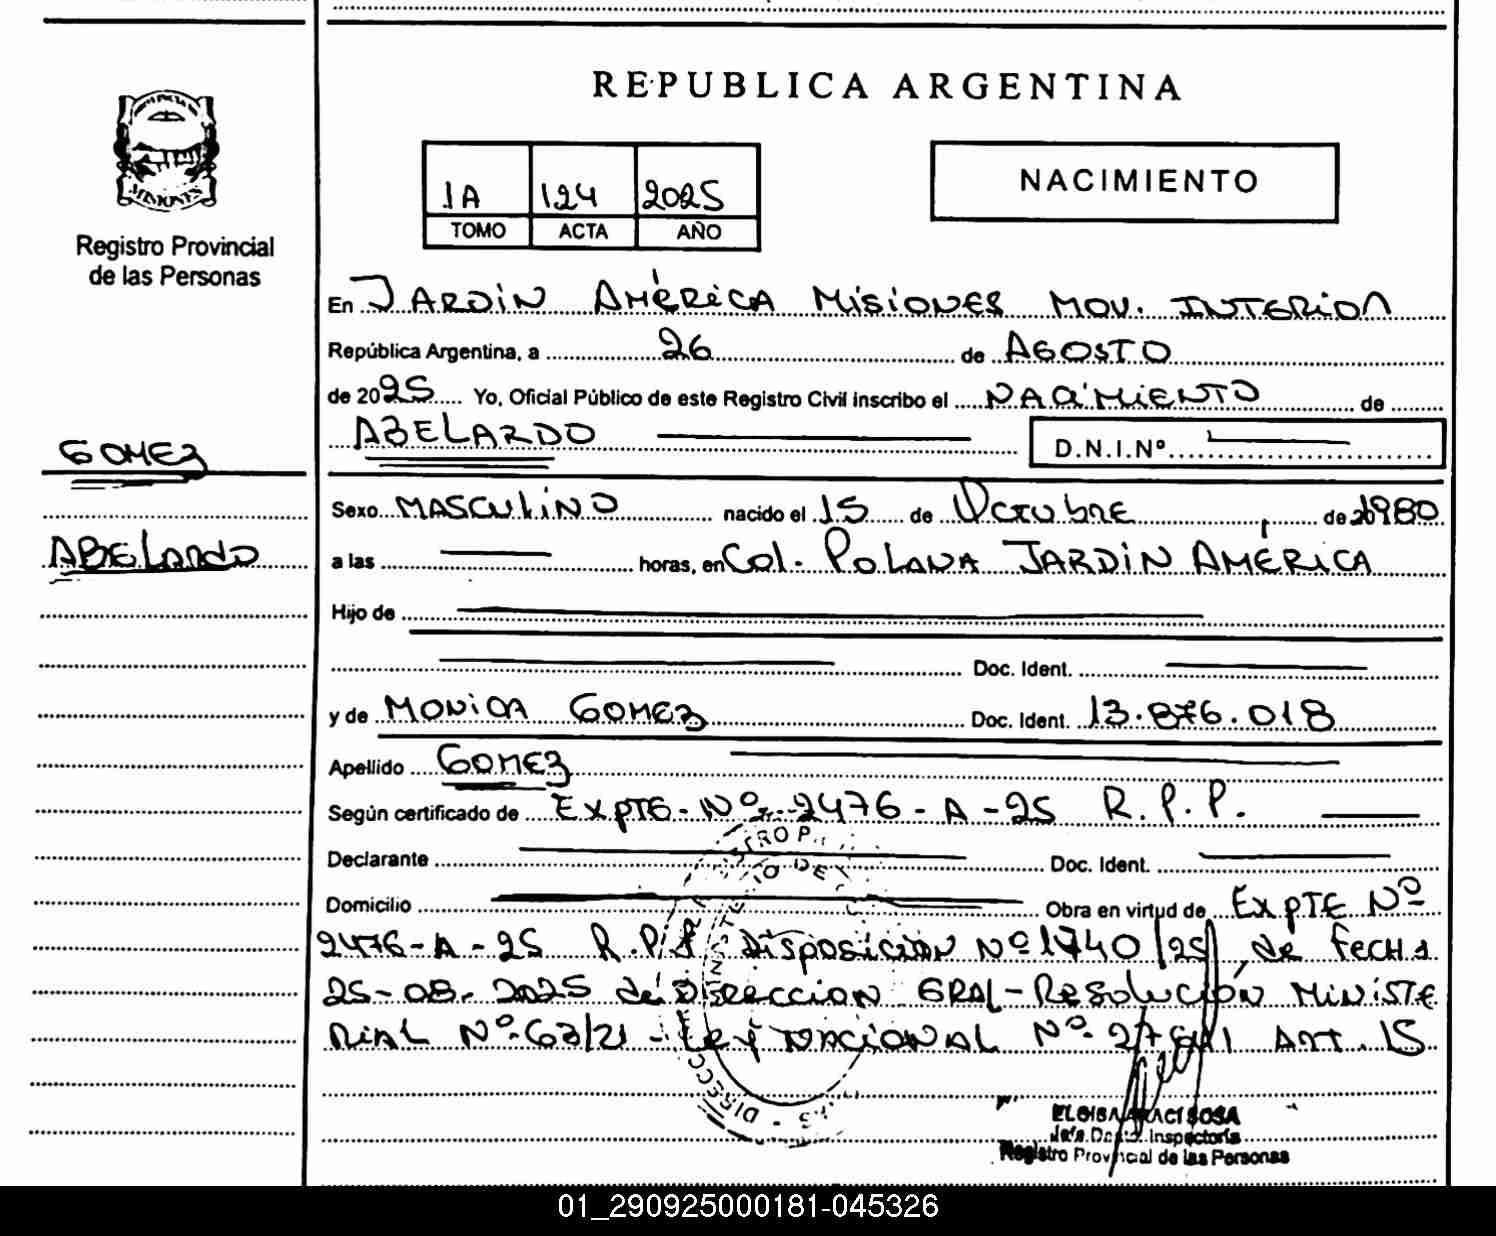 REPUBLICA ARGENTINA
MISIONES
Registro Provincial
de las Personas
1A 124 2025
TOMO ACTA AÑO
NACIMIENTO
En JARDIN AMÉRICA MISIONES MOV. INTERIOR
República Argentina, a 26 de AGOSTO
de 2025 Yo, Oficial Público de este Registro Civil inscribo el NACIMIENTO de
ABELARDO D.N.I.Nº
GOMEZ
ABELARDO
Sexo MASCULINO nacido el 15 de Octubre de 1980
a las horas, en Col. POLANA JARDIN AMÉRICA
Hijo de
Doc. Ident.
y de MONICA GOMEZ Doc. Ident. 13.876.018
Apellido GOMEZ
Según certificado de EXPTE-Nº 2476-A-25 R.P.P.
Declarante Doc. Ident.
Domicilio Obra en virtud de EXPTE Nº
2476-A-25 R.P.P DISPOSICION Nº 1740/25, de FECHA
25-08-2025 de DIRECCION GRAL-RESOLUCIÓN MINISTE
RIAL Nº 63/21 - LEY NACIONAL Nº 27611 ART. 15
ELOISA ARACI SOSA
Jefa Dpto. Inspectoría
Registro Provincial de las Personas
01_290925000181-045326